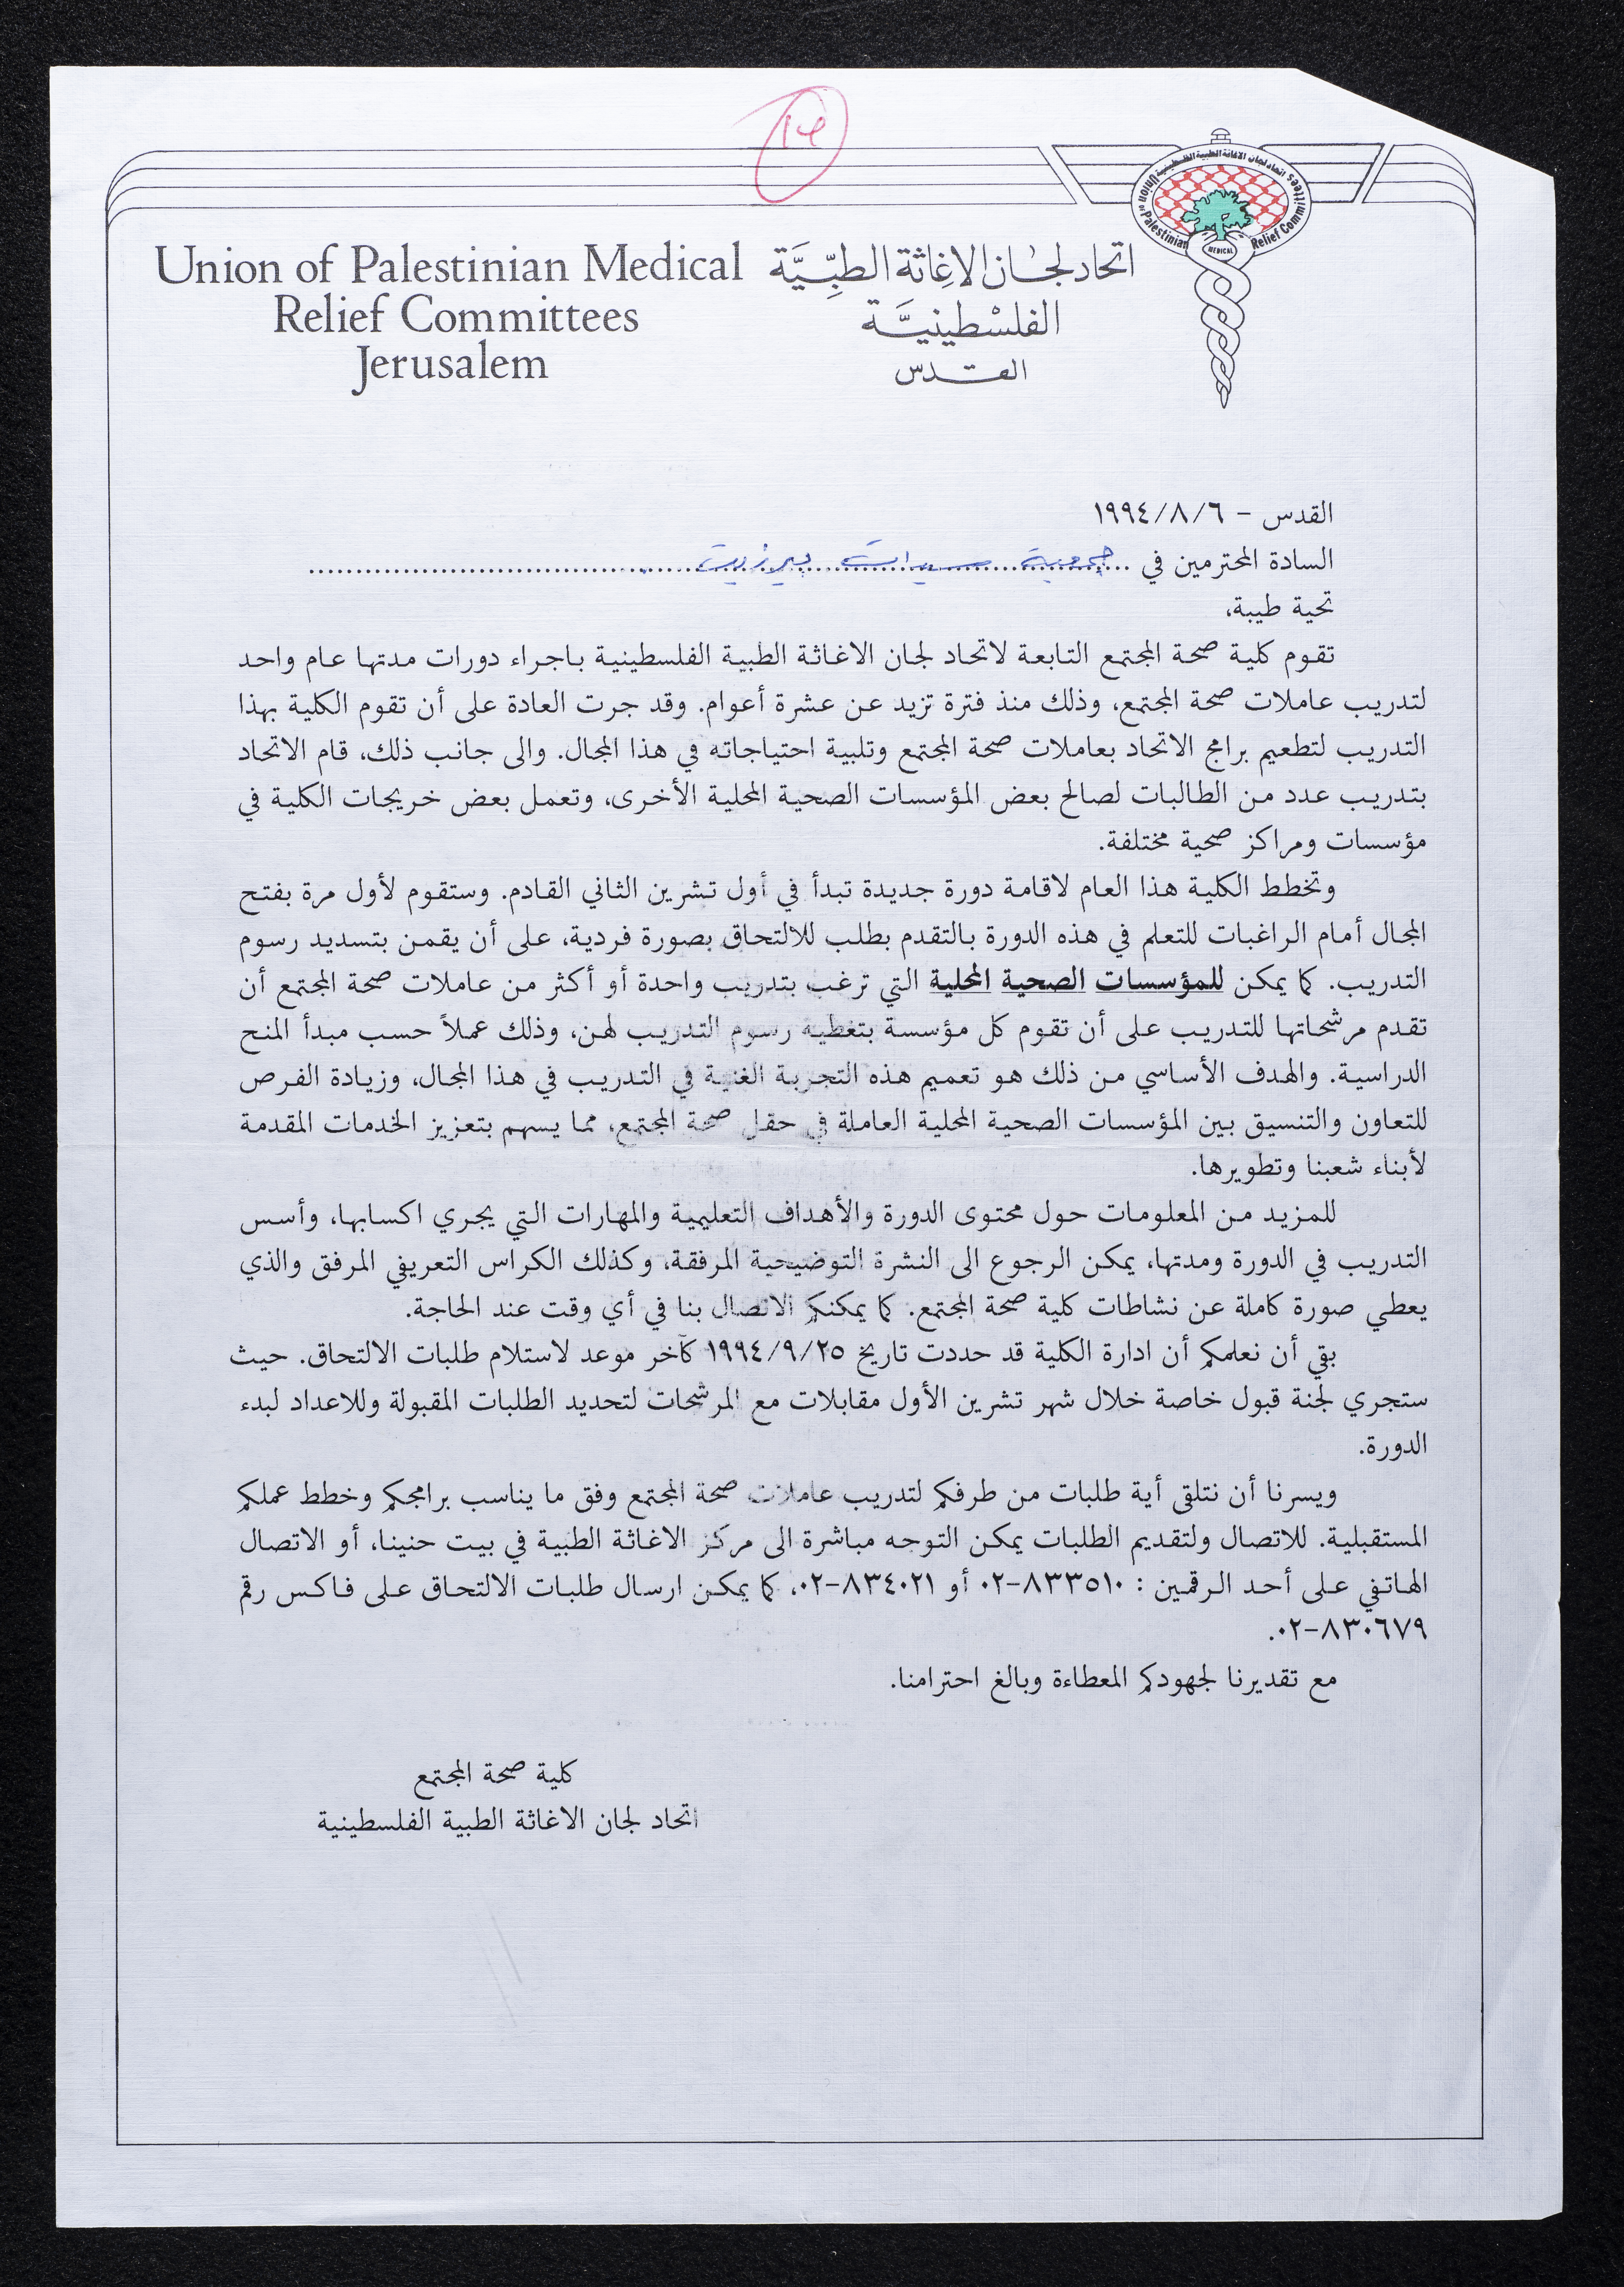 ١٤
اتحاد لجان الاغاثة الطبية الفلسطينية
Union of Palestinian Medical Relief Committees
Union of Palestinian Medical
Relief Committees
Jerusalem
اتحاد لجان الاغِاثة الطبِّيَّة
الفلسْطينيَّة
القدس
القدس - ١٩٩٤/٨/٦
السادة المحترمين في ... جمعية سيدات بيرزيت ...
تحية طيبة،
تقوم كلية صحة المجتمع التابعة لاتحاد لجان الاغاثة الطبية الفلسطينية باجراء دورات مدتها عام واحد
لتدريب عاملات صحة المجتمع، وذلك منذ فترة تزيد عن عشرة أعوام. وقد جرت العادة على أن تقوم الكلية بهذا
التدريب لتطعيم برامج الاتحاد بعاملات صحة المجتمع وتلبية احتياجاته في هذا المجال. والى جانب ذلك، قام الاتحاد
بتدريب عدد من الطالبات لصالح بعض المؤسسات الصحية المحلية الأخرى، وتعمل بعض خريجات الكلية في
مؤسسات ومراكز صحية مختلفة.
وتخطط الكلية هذا العام لاقامة دورة جديدة تبدأ في أول تشرين الثاني القادم. وستقوم لأول مرة بفتح
المجال أمام الراغبات للتعلم في هذه الدورة بالتقدم بطلب للالتحاق بصورة فردية، على أن يقمن بتسديد رسوم
التدريب. كما يمكن للمؤسسات الصحية المحلية التي ترغب بتدريب واحدة أو أكثر من عاملات صحة المجتمع أن
تقدم مرشحاتها للتدريب على أن تقوم كل مؤسسة بتغطية رسوم التدريب لهن، وذلك عملاً حسب مبدأ المنح
الدراسية. والهدف الأساسي من ذلك هو تعميم هذه التجربة الغنية في التدريب في هذا المجال، وزيادة الفرص
للتعاون والتنسيق بين المؤسسات الصحية المحلية العاملة في حقل صحة المجتمع، مما يسهم بتعزيز الخدمات المقدمة
لأبناء شعبنا وتطويرها.
للمزيد من المعلومات حول محتوى الدورة والأهداف التعليمية والمهارات التي يجري اكسابها، وأسس
التدريب في الدورة ومدتها، يمكن الرجوع الى النشرة التوضيحية المرفقة، وكذلك الكراس التعريفي المرفق والذي
يعطي صورة كاملة عن نشاطات كلية صحة المجتمع. كما يمكنكم الاتصال بنا في أي وقت عند الحاجة.
بقي أن نعلمكم أن ادارة الكلية قد حددت تاريخ ١٩٩٤/٩/٢٥ كآخر موعد لاستلام طلبات الالتحاق. حيث
ستجري لجنة قبول خاصة خلال شهر تشرين الأول مقابلات مع المرشحات لتحديد الطلبات المقبولة وللاعداد لبدء
الدورة.
ويسرنا أن نتلقى أية طلبات من طرفكم لتدريب عاملات صحة المجتمع وفق ما يناسب برامجكم وخطط عملكم
المستقبلية. للاتصال ولتقديم الطلبات يمكن التوجه مباشرة الى مركز الاغاثة الطبية في بيت حنينا، أو الاتصال
الهاتفي على أحد الرقمين : ٨٣٣٥١٠-٠٢ أو ٨٣٤٠٢١-٠٢، كما يمكن ارسال طلبات الالتحاق على فاكس رقم
٨٣٠٦٧٩-٠٢.
مع تقديرنا لجهودكم المعطاءة وبالغ احترامنا.
كلية صحة المجتمع
اتحاد لجان الاغاثة الطبية الفلسطينية